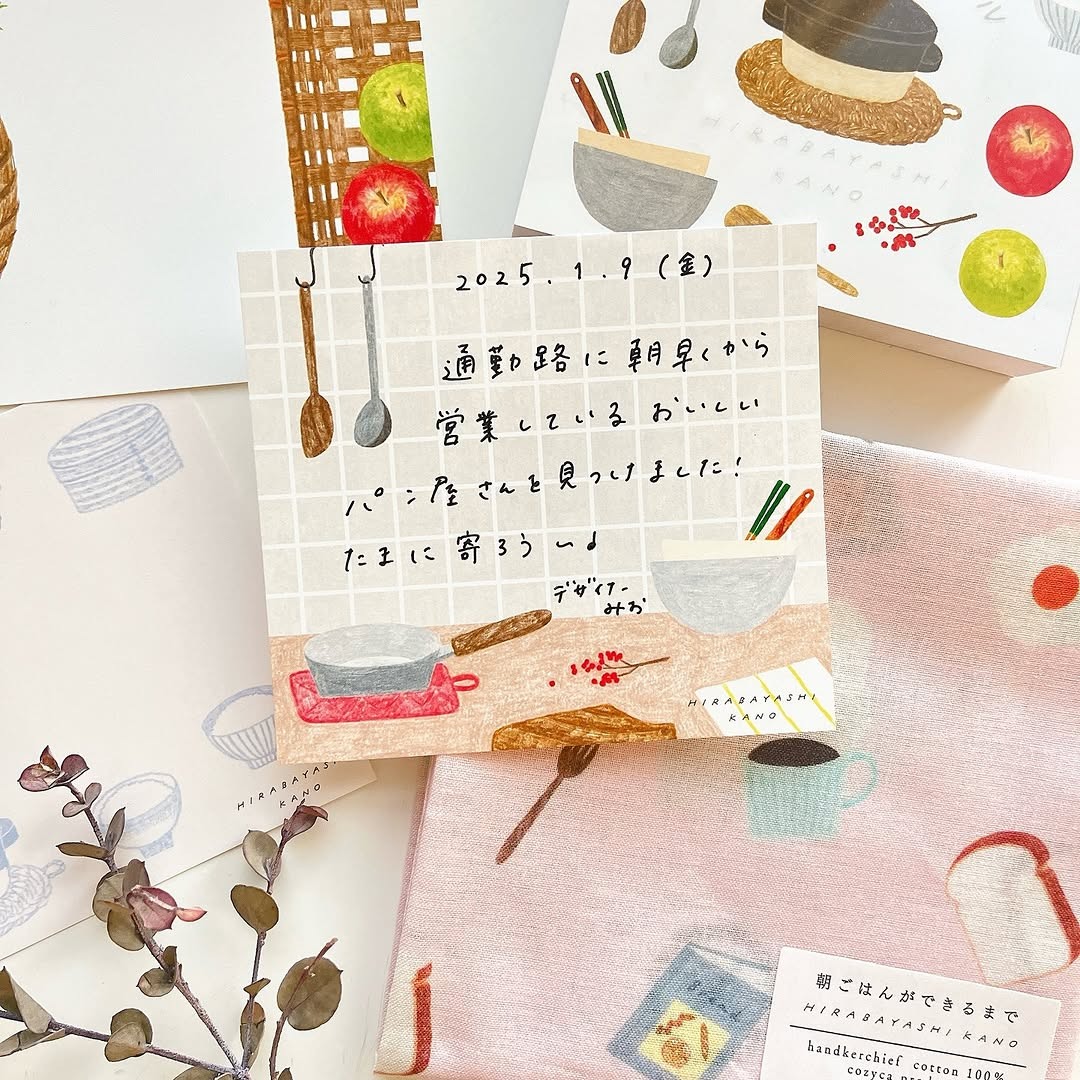 ル
HIRABAYASHI
KANO
2025.1.9(金)
通勤路に朝早くから
営業しているおいしい
パン屋さんを見つけました!
たまに寄ろう〜♪
デザイナー
みお
HIRABAYASHI
KANO
HIRABAYASHI
KANO
Bread
朝ごはんができるまで
HIRABAYASHI KANO
handkerchief cotton 100%